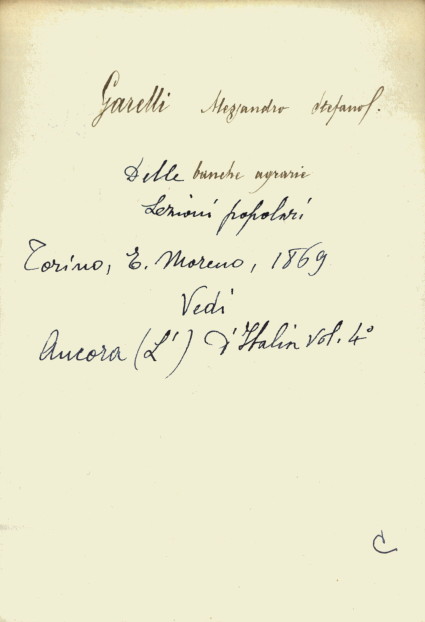 Garelli Alessandro Stefano
Delle banche agrarie
Lezioni popolari
Torino, E. Moreno, 1869
Vedi
Ancora (L') d'Italia vol. 4°
C